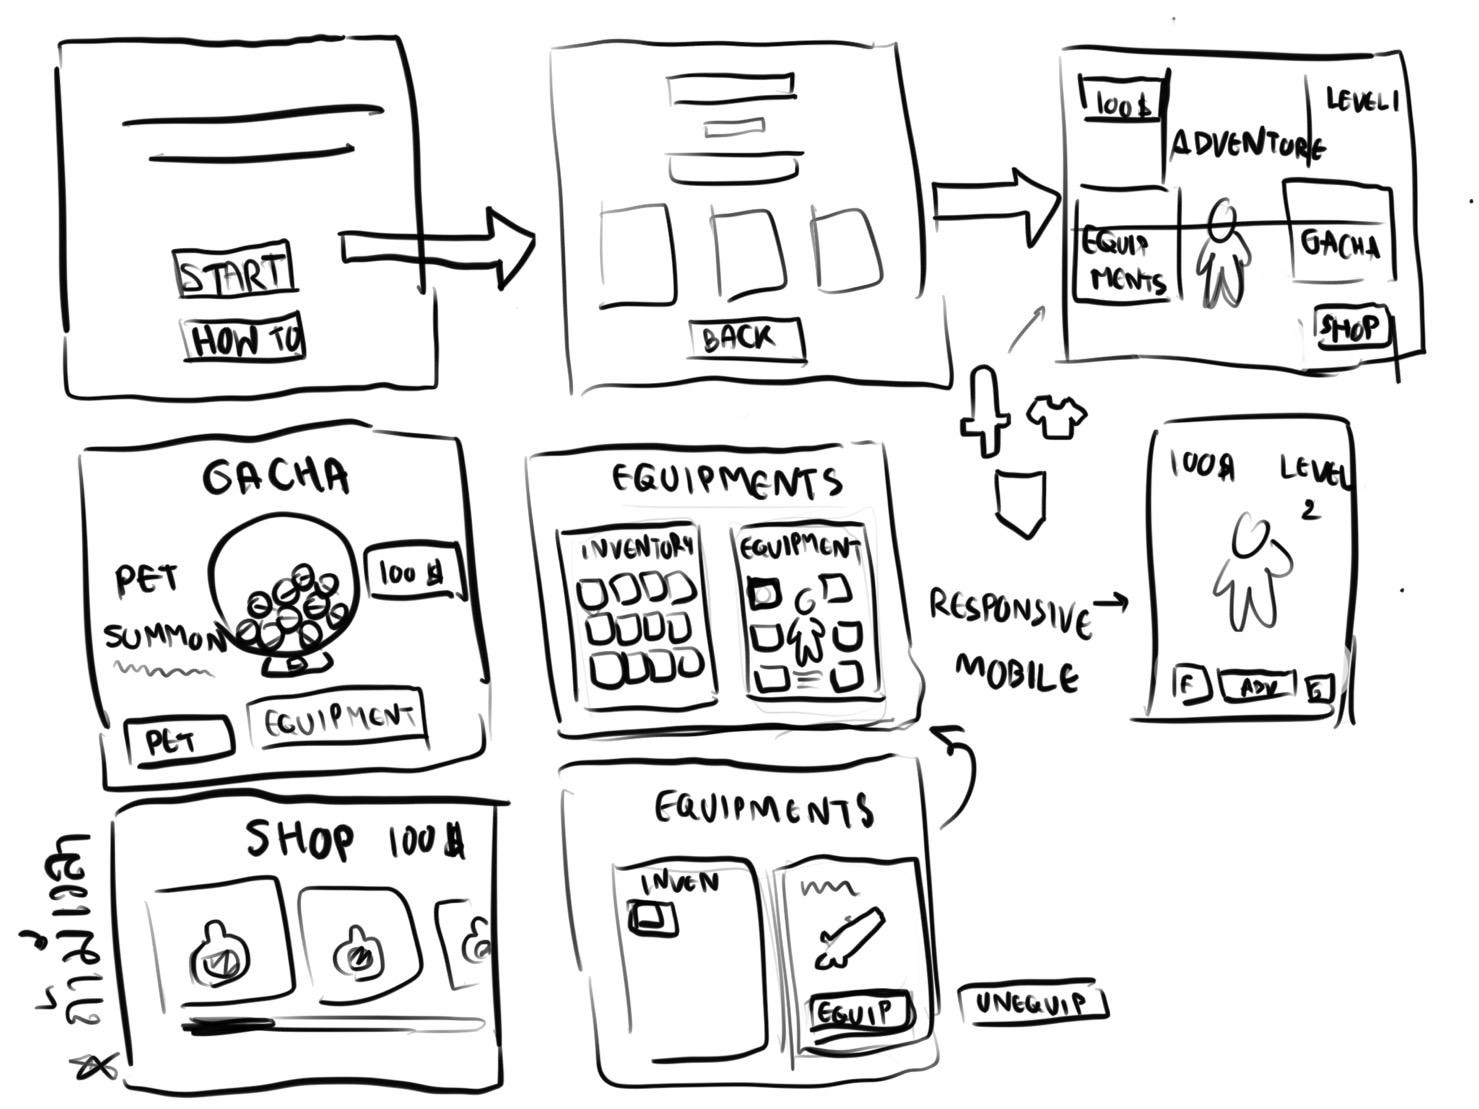 START
HOW TO
BACK
100$
LEVEL 1
ADVENTURE
EQUIP
MENTS
GACHA
SHOP
GACHA
PET
SUMMON
100$
PET
EQUIPMENT
EQUIPMENTS
INVENTORY
EQUIPMENT
RESPONSIVE
MOBILE
100$
LEVEL
2
E
ADV
G
SHOP 100$
EQUIPMENTS
INVEN
EQUIP
UNEQUIP